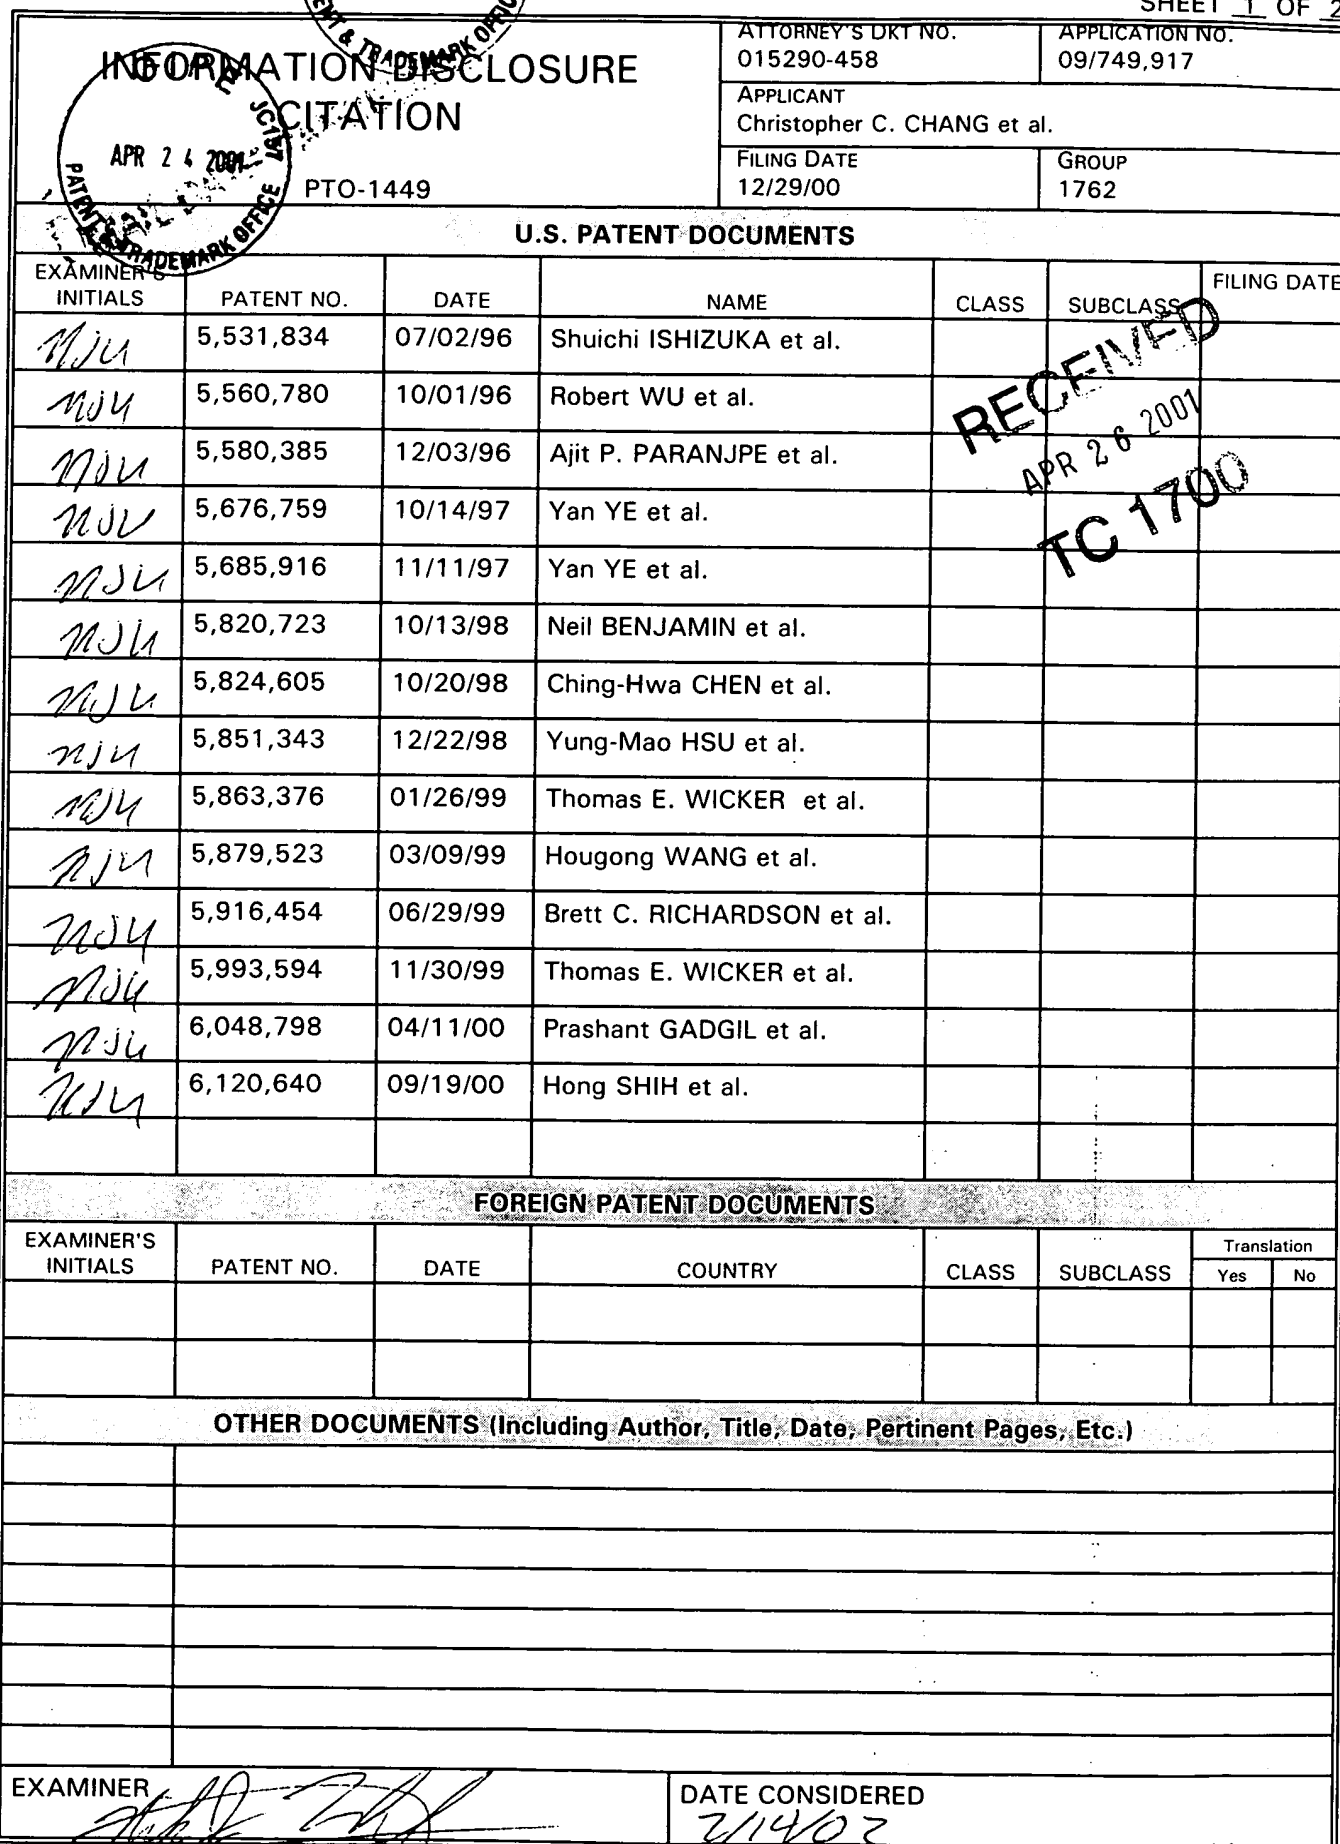 SHEET 1 OF 2
INFORMATION DISCLOSURE
CITATION
PTO-1449
ATTORNEY'S DKT NO.
015290-458
APPLICATION NO.
09/749,917
APPLICANT
Christopher C. CHANG et al.
FILING DATE
12/29/00
GROUP
1762
O I P E JC197
APR 2 4 2001
PATENT & TRADEMARK OFFICE
& TRADEMARK OFFIC
U.S. PATENT DOCUMENTS
EXAMINER'S INITIALS PATENT NO. DATE NAME CLASS SUBCLASS FILING DATE
NJU 5,531,834 07/02/96 Shuichi ISHIZUKA et al.
NJU 5,560,780 10/01/96 Robert WU et al.
NJU 5,580,385 12/03/96 Ajit P. PARANJPE et al.
NJU 5,676,759 10/14/97 Yan YE et al.
NJU 5,685,916 11/11/97 Yan YE et al.
NJU 5,820,723 10/13/98 Neil BENJAMIN et al.
NJU 5,824,605 10/20/98 Ching-Hwa CHEN et al.
NJU 5,851,343 12/22/98 Yung-Mao HSU et al.
NJU 5,863,376 01/26/99 Thomas E. WICKER et al.
NJU 5,879,523 03/09/99 Hougong WANG et al.
NJU 5,916,454 06/29/99 Brett C. RICHARDSON et al.
NJU 5,993,594 11/30/99 Thomas E. WICKER et al.
NJU 6,048,798 04/11/00 Prashant GADGIL et al.
NJU 6,120,640 09/19/00 Hong SHIH et al.
RECEIVED
APR 26 2001
TC 1700
FOREIGN PATENT DOCUMENTS
EXAMINER'S INITIALS PATENT NO. DATE COUNTRY CLASS SUBCLASS Translation
Yes No
OTHER DOCUMENTS (Including Author, Title, Date, Pertinent Pages, Etc.)
EXAMINER
DATE CONSIDERED
2/14/02